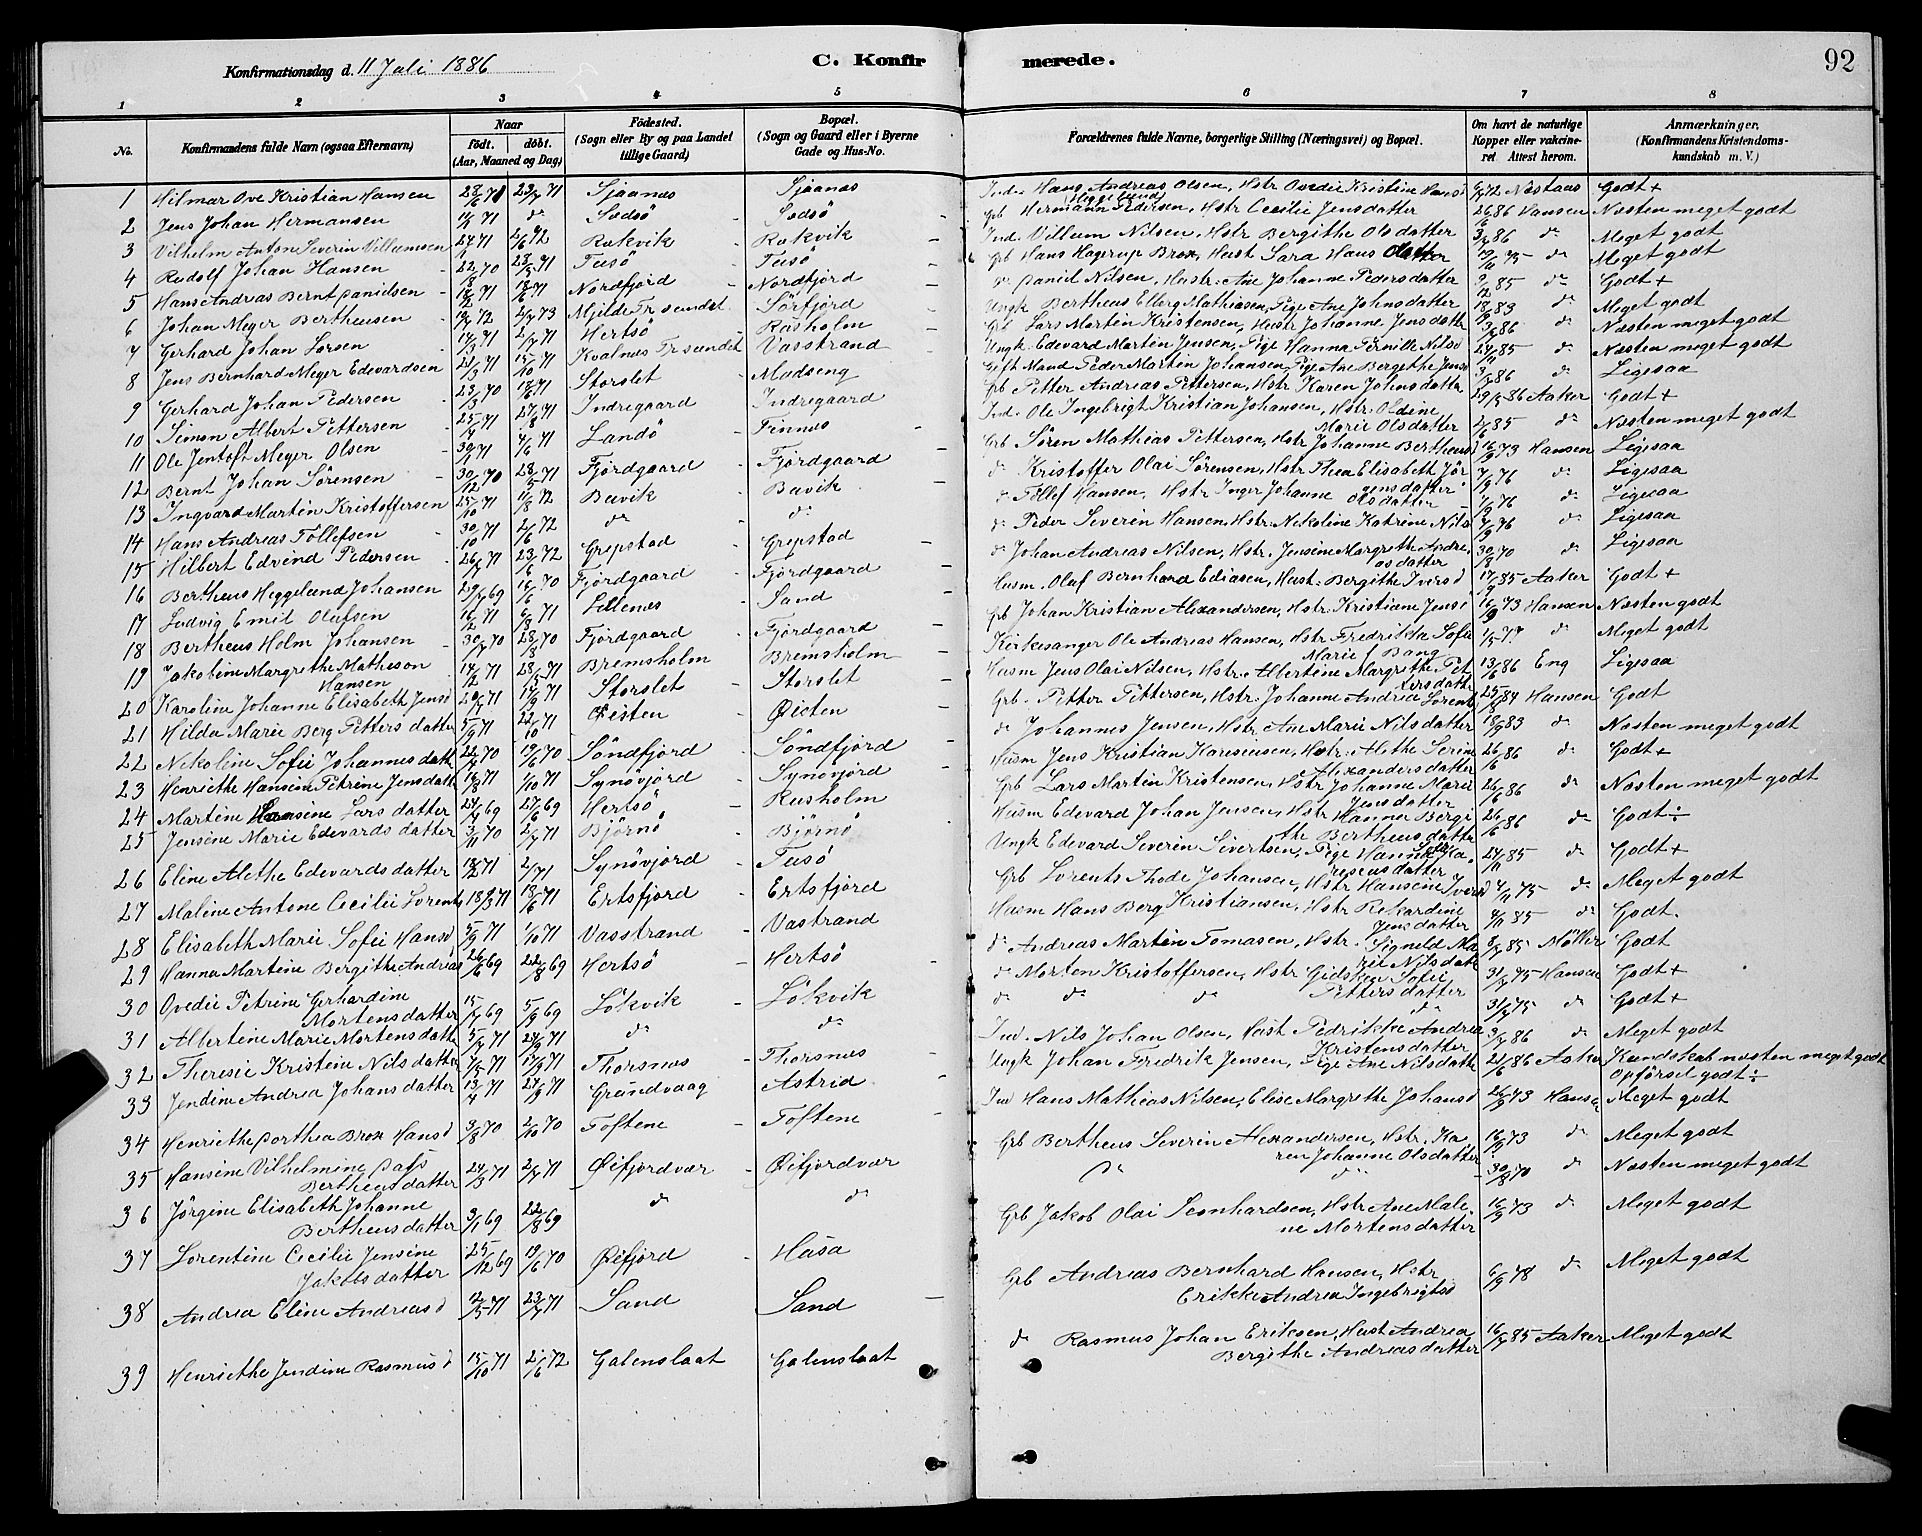 Konfirmationsdag d. 11 Juli 1886 C. Konfirmerede. 92
1 2 3 4 5 6 7 8
No. Konfirmandens fulde Navn (ogsaa Efternavn) Naar født. døbt. (Aar, Maaned og Dag) Fødested. (Sogn eller By og paa Landet tillige Gaard) Bopæl. (Sogn og Gaard eller i Byerne Gade og Hus-No. Forældrenes fulde Navne, borgerlige Stilling (Næringsvei) og Bopæl. Om havt de naturlige Kopper eller vakcineret. Attest herom. Anmærkninger, (Konfirmandens Kristendomskundskab m. V.)
1 Hilmar Ove Kristian Hansen 28/6 71 23/7 71 Sjaanes Sjaanes Ind. Hans Andreas Olsen, Hstr Ovedie Kristine Hansd 72 Godt +
2 Jens Johan Hermansen 71 d° Sødsö Sødsö Grb Hermann Heggelund Pedersen, Hstr Cecilie Jensdatter 26/6 86 Hansen Næsten meget godt
3 Vilhelm Anton Severin Villumsen 71 2/6 72 Rakvik Rakvik Ind. Villum Nilsen, Hstr Bergithe Olsdatter 86 d° Meget godt
4 Rudolf Johan Hansen 22/8 70 71 Tusö Tusö Grb Hans Hagerup Brox, Hust Sara Hans datter 75 d° Meget godt
5 Hans Andreas Bernt Danielsen 18/2 71 18/6 71 Nordfjord Nordfjord d° Daniel Nilsen, Hustr Ane Johanne Pedersdatter 85 d° Godt +
6 Johan Meyer Bertheusen 72 73 Mjelde Tr.sundet Sörfjord Ungk Bertheus Elberg Mathiasen, Pige Ane Johnsdatter 83 d° Meget godt
7 Gerhard Johan Larsen 71 71 Hertsö Rusholm Grb Lars Martin Kristensen, Hustr Johanne Jensdattr 86 d° Næsten meget godt
8 Jens Bernhard Meyer Edevardsen 21/3 71 15/10 71 Kvalnes Tr.sundet Vasstrand Ungk. Edevard Martin Jensen, Pige Hanna Pernille Nilsd 85 d° Næsten meget godt
9 Gerhard Johan Pedersen 23/3 70 18/6 71 Storslet Madseng Gift Mand Peder Martin Johansen, Pige Ane Bergethe Jensd 86 d° Ligesaa
10 Simon Albert Pettersen 25/4 71 27/8 71 Indregaard Indregaard Grb Petter Andreas Pettersen, Hstr Karen Johnsdatter 86 Aaker Godt +
11 Ole Jentoft Meyer Olsen 71 71 Landö Finnes Ind. Ole Ingebrigt Kristian Johansen, Hstr. Oldine Marie Olsdatter 85 d° Næsten meget godt
12 Bernt Johan Sörensen 30/12 70 28/5 71 Fjordgaard Fjordgaard Grb Sören Mathias Pettersen, Hstr Johanne Bertheusd 16/9 73 Hansen Ligesaa
13 Ingvard Martin Kristoffersen 25/10 71 11/8 72 Bavik Bavik d° Kristoffer Olai Sörensen, Hstr Thea Elisabeth Jörgensdatter 76 d° Ligesaa
14 Hans Andreas Töllefsen 30/10 71 2/6 72 d° d° d° Töllef Hansen, Hstr Inger Johanne Olsdatter 76 d° Ligesaa
15 Hilbert Edvind Pedersen 26/7 71 23/6 72 Grepstad Grepstad d° Peder Severin Hansen, Hstr. Nikoline Katrine Nilsd 76 d° Ligesaa
16 Bertheus Heggelund Johansen 69 16/6 70 Fjordgaard Fjordgaard d° Johan Andreas Nilsen, Hstr. Jensine Margrethe Andreasdatter 30/8 70 d° Ligesaa
17 Ludvig Emil Olafsen 16/2 71 6/8 71 Lillenes Sand Husm. Olaf Bernhard Ediasen, Hust. Bergithe Iversd 85 Aaker Godt +
18 Bertheus Holm Johansen 30/7 70 28/8 70 Fjordgaard Fjordgaard Grb Johan Kristian Alexandersen, Hstr. Kristiane Jensd 16/9 73 Hansen Næsten godt
19 Jakobine Margrethe Mathesón Hansen 71 28/5 71 Bremsholm Bremsholm Kirkesanger Ole Andreas Hansen, Hstr Fredrikka Sofie Marie f Bang 77 d° Meget godt
20 Karoline Johanne Elisabeth Jensd 71 17/9 71 Storslet Storslet Husm Jens Olai Nilsen, Hstr. Albertine Margrethe Pettersdattr 13/6 86 Eng Ligesaa
21 Hilda Marie Berg Petters datter 5/9 71 22/10 71 Øisten Øisten Grb. Petter Pettersen, Hstr. Johanne Andrea Lorentsd 84 Hansen Godt
22 Nikoline Sofie Johannesdattr 70 19/6 70 Söndfjord Söndfjord d° Johannes Jensen, Hstr Ane Marie Nilsdatter 83 d° Næsten meget godt
23 Henriethe Hansine Petrine Jensdattr 71 1/10 71 Synövjord Synövjord Husm Jens Kristian Karensiusen, Hstr. Alethe Serine Alexandersdatter 26/6 86 d° Godt +
24 Martine Hansine Lars datter 69 27/6 69 Hertsö Rusholm Grb Lars Martin Kristensen, Hstr Johanne Marie Jensdatter 26/6 86 d° Næsten meget godt
25 Jensine Marie Edevards datter 3/11 70 71 Björnö Björnö Husm Edevard Johan Jensen, Hstr Hanna Bergithe Bertheusdatter 26/6 86 d° Godt ÷
26 Eline Alethe Edevardsdatter 71 71 Synövjord Tusö Ungk Edevard Severin Sivertsen, Pige Hanna Karesiusdatter 85 d° Godt +
27 Maline Antone Cecilie Lorentsd 18/3 71 18/6 71 Ertsfjord Ertsfjord Grb Lorents Thode Johansen, Hstr Hansine Iversd 75 d° Meget godt
28 Elisabeth Marie Sofie Hansd 5/9 71 1/10 71 Vasstrand Vastrand Husm Hans Berg Kristiansen, Hstr Rekardine Jensdatter 85 d° Godt.
29 Hanna Martine Bergithe Andreasd 26/6 69 22/8 69 Hertsö Hertsö d° Andreas Martin Tomasen, Hstr. Signeld Marie Nilsdatr 85 Möller Godt
30 Ovedie Petrine Gerhardine Mortensdatter 15/7 69 5/9 69 Lökvik Lökvik d° Morten Kristoffersen, Hstr Gidsken Sofie Petters datter 75 Hansen Godt +
31 Albertine Marie Mortensdattr 71 24/9 71 d° d° d° d° d° d° 75 d° Godt +
32 Theresie Kristine Nilsdatter 71 17/9 71 Thorsnes Thorsnes Ind. Nils Johan Olsen, Hust Pedrikke Andrea Kristensdatter 86 d° Meget godt
33 Jendine Andrea Johansdatter 71 71 Grundvaag Astrid Ungk Johan Fredrik Jensen, Pige Ane Nilsdatter 86 Aaker Kundskab næsten meget godt Opförsel godt ÷
34 Henriethe Dorthea Brox Hansd 3/8 70 2/10 70 Toftene Toftene Ind Hans Mathias Nilsen, Elise Margrethe Johansd 73 Hansen Meget godt
35 Hansine Vilhelmine Dass Bertheusdatter 24/3 71 71 Øifjordvær Øifjordvær Grb Bertheus Severin Alexandersen, Hstr. Karen Johanne Olsdatter 16/9 73 d° Meget godt
36 Jörgine Elisabeth Johanne Bertheusdatter 3/1 69 22/8 69 d° d° d° d° 30/8 70 d° Næsten meget godt
37 Lorentine Cecilie Jensine Jakobsdatter 25/12 69 19/6 70 Øifjord Husa Grb Jakob Olai Leonhardsen, Hstr Ane Malene Mortensdatter 16/9 73 d° Meget godt
38 Andrea Eline Andreasd 12/5 71 23/7 71 Sand Sand Grb Andreas Bernhard Hansen, Hstr Erikke Andrea Ingebrigtsd 6/9 78 d° Meget godt
39 Henriethe Jendine Rasmusd 15/10 71 2/6 72 Galenslaat Galenslaat d° Rasmus Johan Eriksen, Hust Andrea Bergithe Andreasdatter 85 Aaker Meget godt